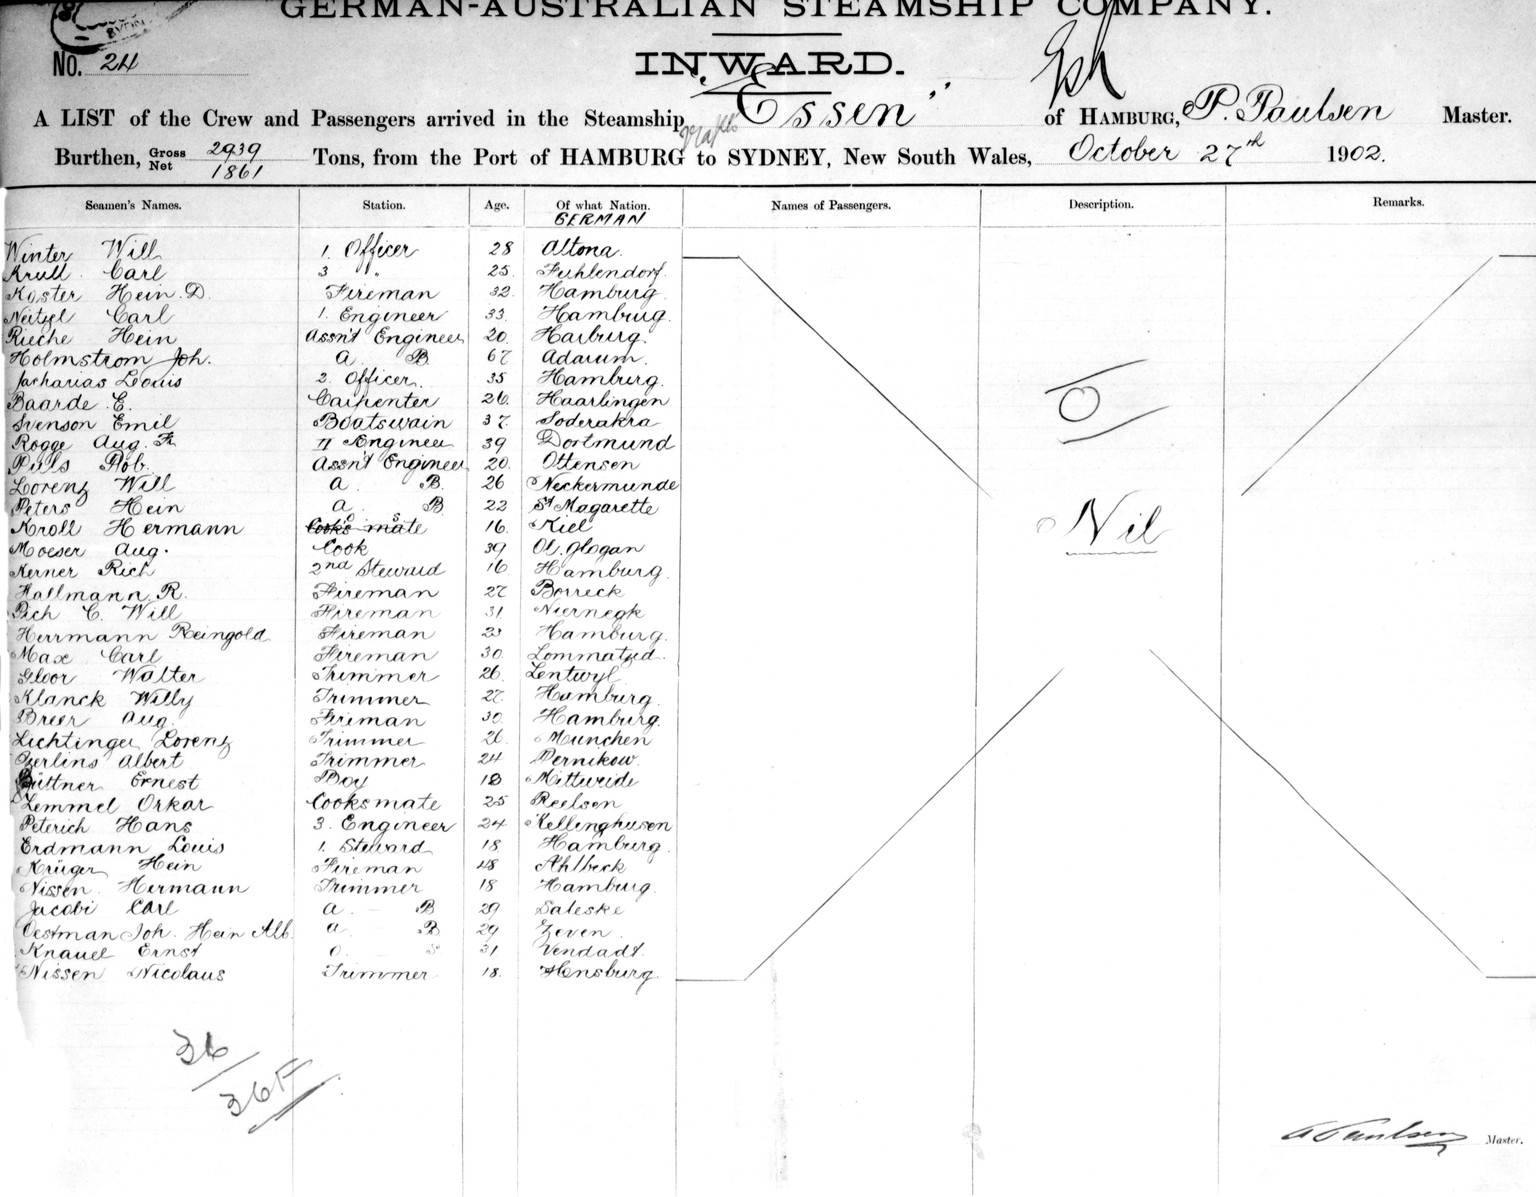 GERMAN-AUSTRALIAN STEAMSHIP COMPANY.
No. 24
INWARD.
A LIST of the Crew and Passengers arrived in the Steamship "Essen" of HAMBURG, P. Paulsen Master.
Burthen, Gross 2939 Net 1861 Tons, from the Port of HAMBURG to SYDNEY, New South Wales, October 27th 1902.
Seamen's Names. Station. Age. Of what Nation. Names of Passengers. Description. Remarks.
GERMAN
Winter Will 1. Officer 28 Altona.
Krull Carl 3 " 25. Fuhlendorf.
Koster Hein. D. Fireman 32. Hamburg.
Neitzel Carl 1. Engineer 33. Hamburg.
Rieche Hein Assn't Engineer 20. Harburg.
Holmstrom Joh. A. B. 67 Adarum.
Zacharias Louis 2. Officer. 35 Hamburg.
Baarde E. Carpenter 26. Haarlingen
Svenson Emil Boatswain 37. Soderakra
Rogge Aug. Fr. II Engineer 39 Dortmund
Puls Rob. Assn't Engineer 20. Ottensen
Lorenz Will A. B. 26 Neckermunde
Peters Hein A. B 22 St Magarette
Kroll Hermann Cook's mate O S 16. Kiel
Moeser Aug. Cook 39 Ol. Glogan
Kerner Rich 2nd Steward 16 Hamburg.
Hallmann. R. Fireman 27 Borreck
Pich C. Will Fireman 31. Niernegk
Herrmann Reingold Fireman 23 Hamburg.
Max Carl Fireman 30. Lommatzed.
Gloor Walter Trimmer 26. Lentwyl
Klanck Willy Trimmer 27. Hamburg.
Breer Aug. Fireman 30. Hamburg.
Lichtinger Lorenz Trimmer 26. Munchen
Zerlins Albert Trimmer 24 Dernikow.
Büttner Ernest Boy 18 Mittweide
Lemmel Orkar Cooksmate 25 Reelsen
Peterich Hans 3. Engineer 24 Kellinghusen
Erdmann Louis 1. Steward 18. Hamburg.
Krüger Hein Fireman 48 Ahlbeck
Nissen Hermann Trimmer 18 Hamburg.
Jacobi Carl A. B 29 Saleske
Oestman Joh. Hein Alb. A. B 29 Zeven.
Knauel Ernst O. S 31 Vendadt.
Nissen Nicolaus Trimmer 18. Hensburg.
O
Nil
36
36 F
P. Paulsen Master.